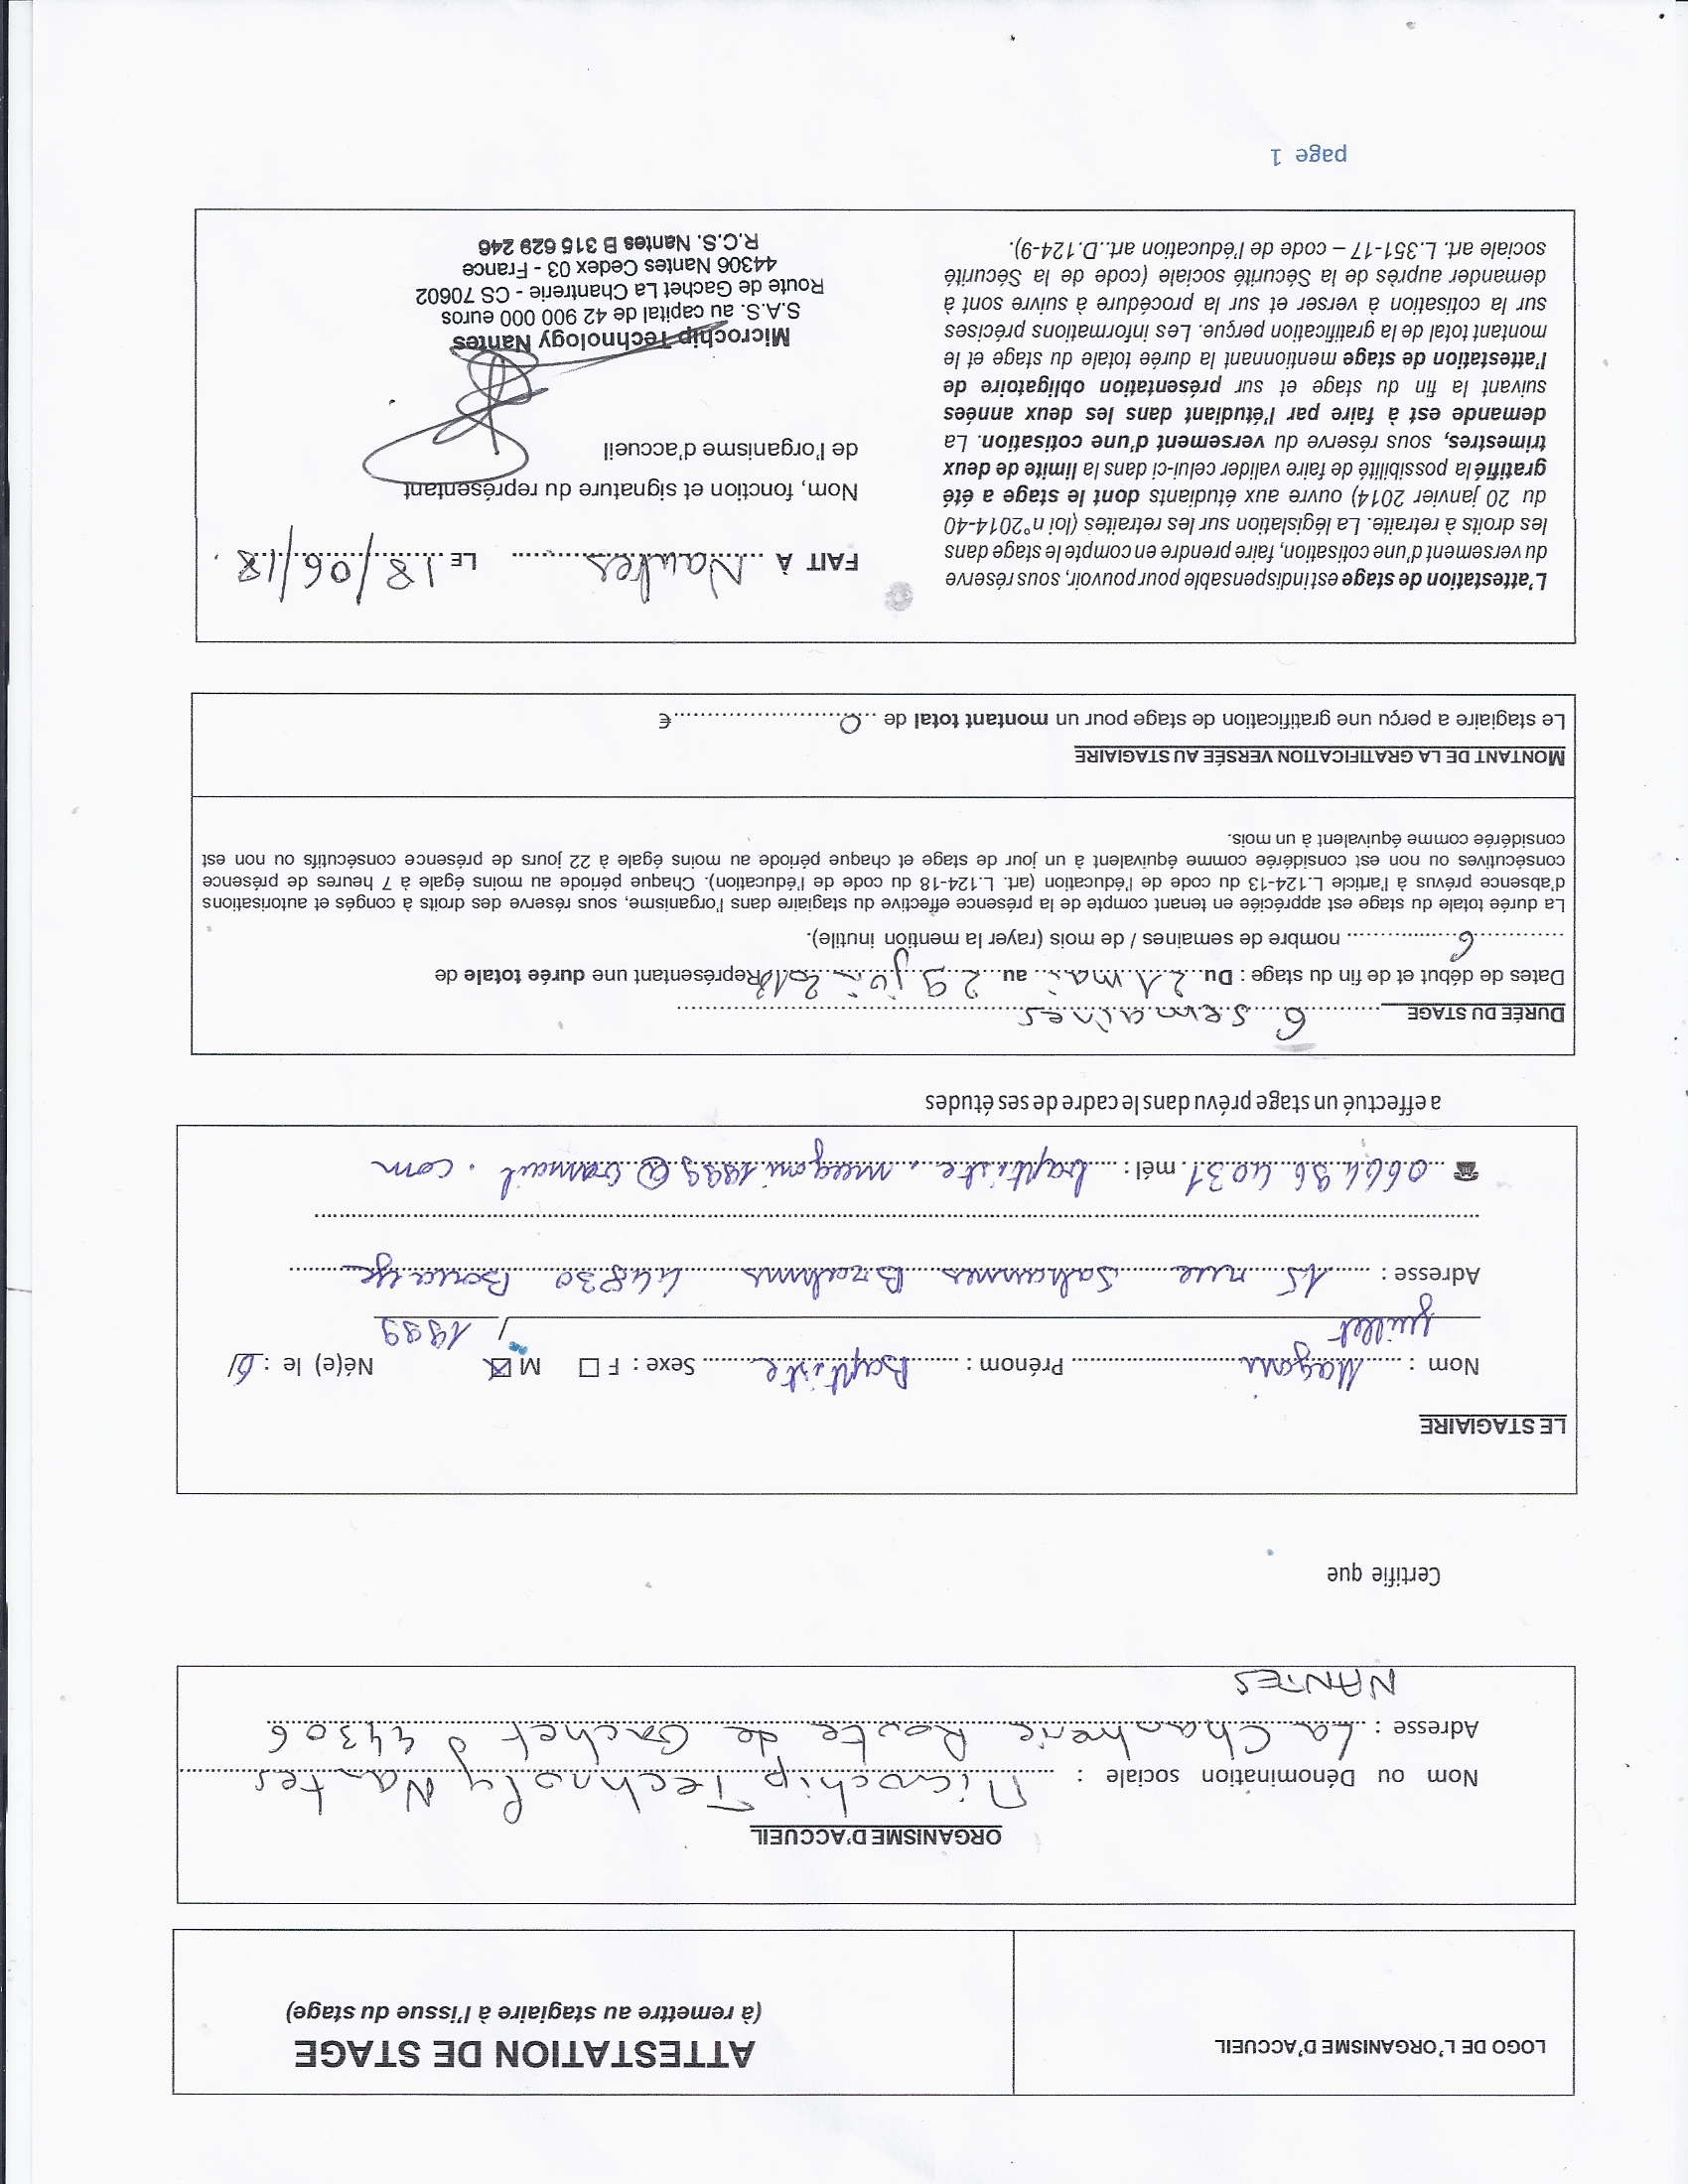 LOGO DE L'ORGANISME D'ACCUEIL
ATTESTATION DE STAGE
(à remettre au stagiaire à l'issue du stage)
ORGANISME D'ACCUEIL
Nom ou Dénomination sociale : Microchip Technoly Nantes
Adresse : La Chantrerie Route de Gachet 44306
NANTES
Certifie que
LE STAGIAIRE
Nom : Magoni Prénom : Baptiste Sexe : F ☐ M ☒ Né(e) le : 6/
juillet / 1999
Adresse : 15 rue Johannes Brahms 44830 Bouaye
☎ 0664964031 mél : baptiste.magoni1999@Gamail.com
a effectué un stage prévu dans le cadre de ses études
DURÉE DU STAGE 6 semaines
Dates de début et de fin du stage : Du 21 mai au 29 juin 2018 Représentant une durée totale de
6 nombre de semaines / de mois (rayer la mention inutile).
La durée totale du stage est appréciée en tenant compte de la présence effective du stagiaire dans l'organisme, sous réserve des droits à congés et autorisations
d'absence prévus à l'article L.124-13 du code de l'éducation (art. L.124-18 du code de l'éducation). Chaque période au moins égale à 7 heures de présence
consécutives ou non est considérée comme équivalent à un jour de stage et chaque période au moins égale à 22 jours de présence consécutifs ou non est
considérée comme équivalent à un mois.
MONTANT DE LA GRATIFICATION VERSÉE AU STAGIAIRE
Le stagiaire a perçu une gratification de stage pour un montant total de 0 €
L'attestation de stage est indispensable pour pouvoir, sous réserve
du versement d'une cotisation, faire prendre en compte le stage dans
les droits à retraite. La législation sur les retraites (loi n°2014-40
du 20 janvier 2014) ouvre aux étudiants dont le stage a été
gratifié la possibilité de faire valider celui-ci dans la limite de deux
trimestres, sous réserve du versement d'une cotisation. La
demande est à faire par l'étudiant dans les deux années
suivant la fin du stage et sur présentation obligatoire de
l'attestation de stage mentionnant la durée totale du stage et le
montant total de la gratification perçue. Les informations précises
sur la cotisation à verser et sur la procédure à suivre sont à
demander auprès de la Sécurité sociale (code de la Sécurité
sociale art. L.351-17 – code de l'éducation art..D.124-9).
FAIT À Nantes LE 18/06/18.
Nom, fonction et signature du représentant
de l'organisme d'accueil
Microchip Technology Nantes
S.A.S. au capital de 42 900 000 euros
Route de Gachet La Chantrerie - CS 70602
44306 Nantes Cedex 03 - France
R.C.S. Nantes B 315 629 246
page 1